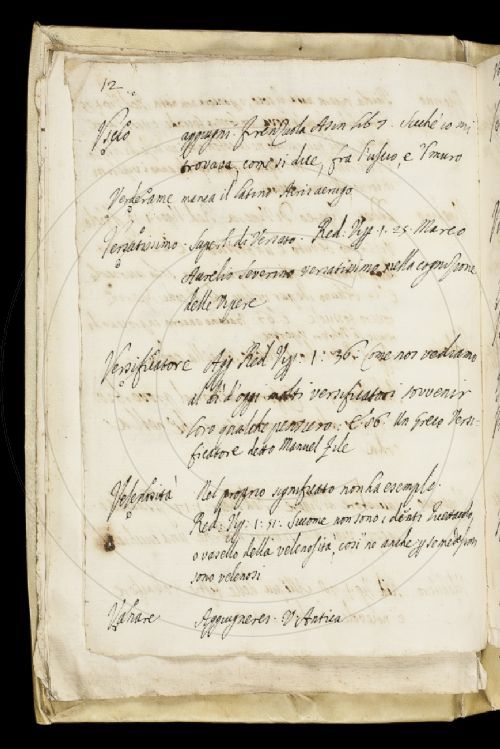 12
Uscio aggiugni. Firenzuola Asin lib 3. Sicché io mi
trovava, come si dice, fra l'uscio, e 'l muro
Verderame manca il latino Aeris aerugo
Versatissimo. Superl. di Versato. Red. Vip. 1. 25. Marco
Aurelio Severino versatissimo nella cognizione
delle Vipere
Versificatore Agg. Red. Vip. 1. 36. Come noi vediamo
al dì d'oggi molti versificatori sovvenir
loro qualche pensiero. E 86 Un Greco Versi-
ficatore detto Manuel File
Velenosità Nel proprio significato non ha esemple.
Red. Vip. 1. 11. Siccome non sono i denti ricettacolo,
o vasello della velenosità, così ne anche p se medesimi
sono velenosi
Aggiugnerei. V. Antica